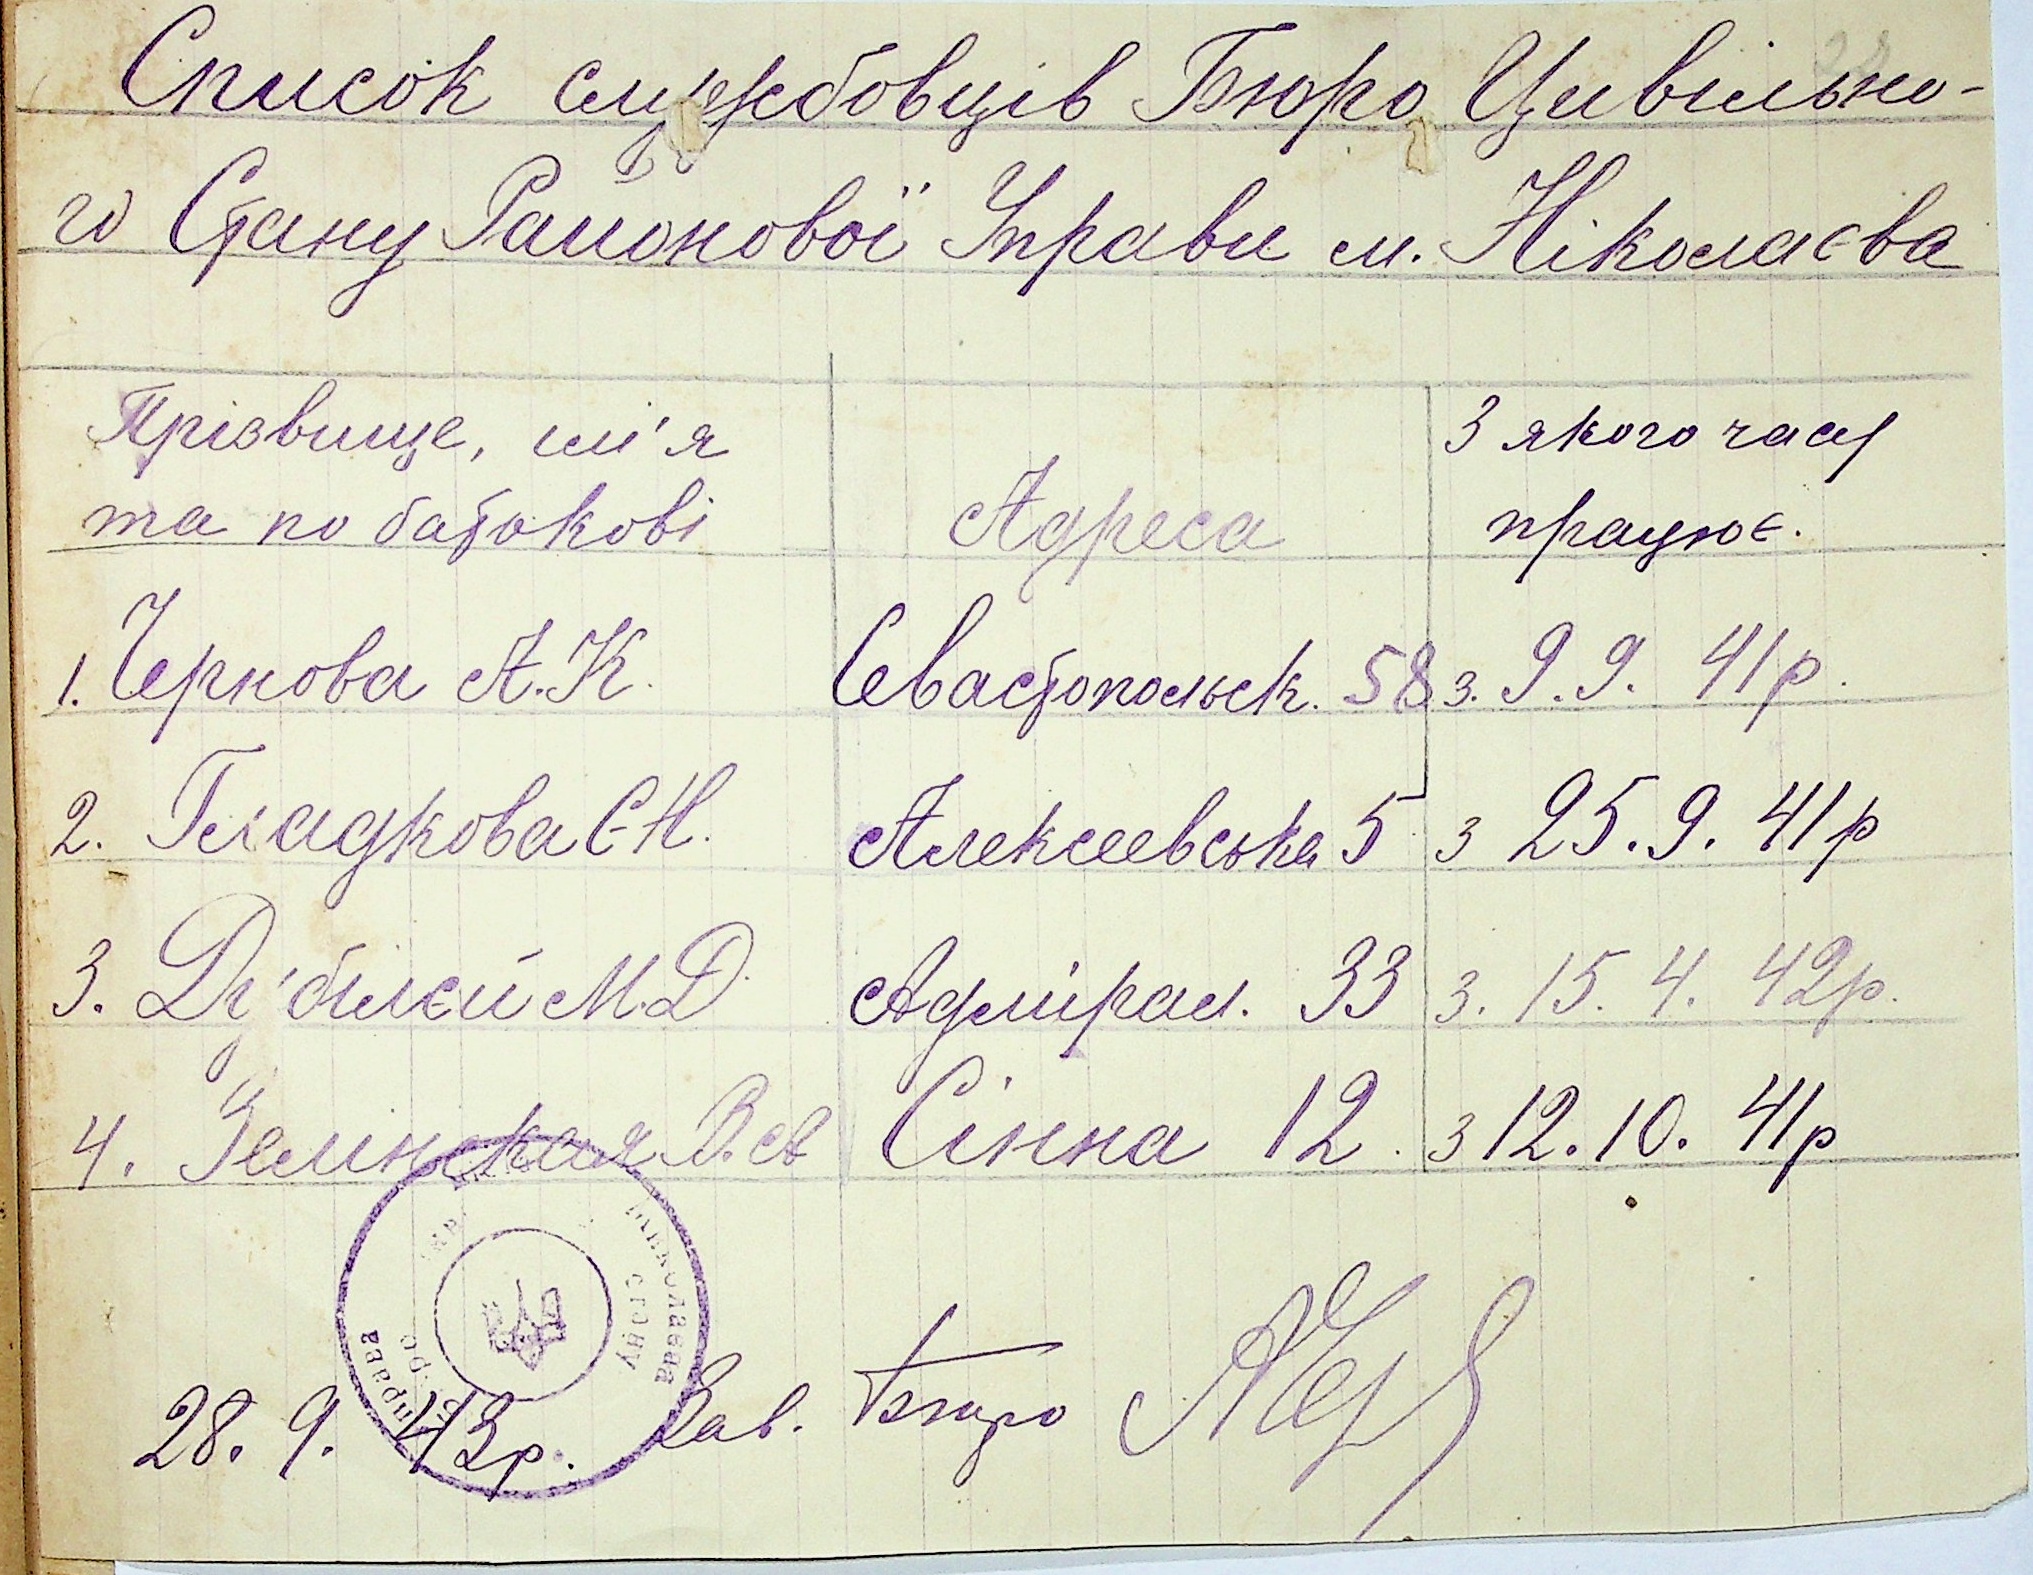 Список службовців Бюро Цивільно-
го Стану Районової Управи м. Ніколаєва
Прізвище, ім'я
та по батькові
Адреса
З якого часу
працює.
1. Чернова А.К. Севастопольск. 58 з. 9.9. 41р.
2. Гладкова Є.Н. Алексеевська 5 з 25.9. 41р
3. Дубілєй М.Д. Адмірал. 33 з. 15. 4. 42р.
4. Зелинская В. Сінна 12. з 12.10. 41р
Николаева
стану
управа
28. 9. 43р. Зав. Бюро